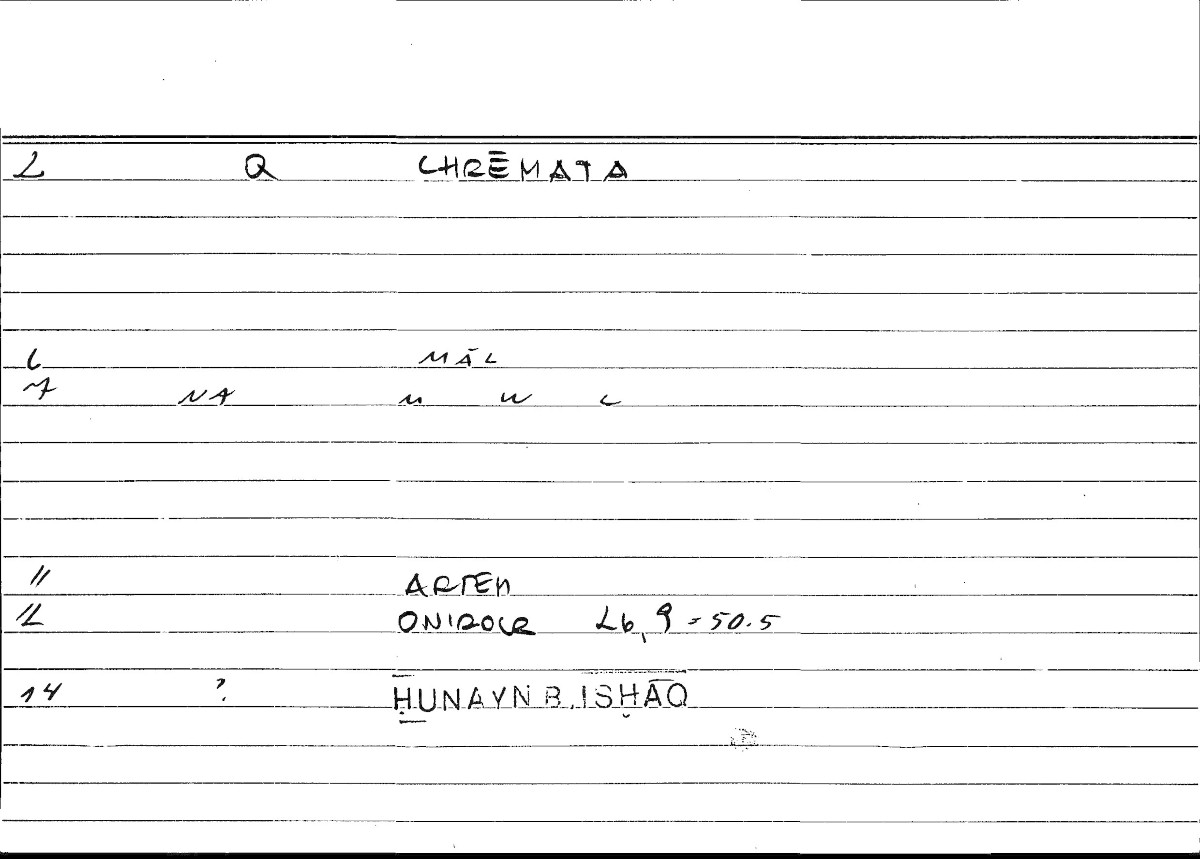 2 Q CHRĒMATA
6 MĀL
7 NA M W L
11 ARTEM
12 ONIROCR 26,9 = 50.5
14 ? ḤUNAYN B. ISḤĀQ